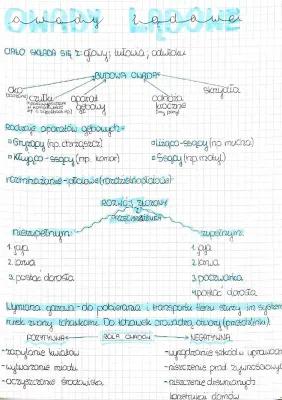 owady lądowe
CIAŁO SKŁADA SIĘ z głowy, tułowia, odwłoku
BUDOWA OWADA
oko czułki aparat gębowy odnóża kroczne skrzydła
Rodzaje aparatów gębowych:
Gryzący (np. chrząszcz) Liżąco-ssący (np. mucha)
Kłująco-ssący (np. komar) Ssący (np. motyl)
rozmnażanie - płciowe (rozdzielnopłciowe)
ROZWÓJ ZŁOŻONY
Z
PRZEOBRAŻENIEM
niezupełnym: zupełnym:
1. jaja 1. jaja
2. larwa 2. larwa
3. postać dorosła 3. poczwarka
4. postać dorosła
Wymiana gazowa - do pobierania i transportu tlenu służy im system
rurek zwany tchawkami. Do tchawek prowadzą otwory (przetchlinki).
POZYTYWNA ROLA OWADÓW NEGATYWNA
- zapylanie kwiatów - wyrządzanie szkód w uprawach
- wytwarzanie miodu - niszczenie prod. żywnościowych
- oczyszczanie środowiska - niszczenie drewnianych
konstrukcji domów